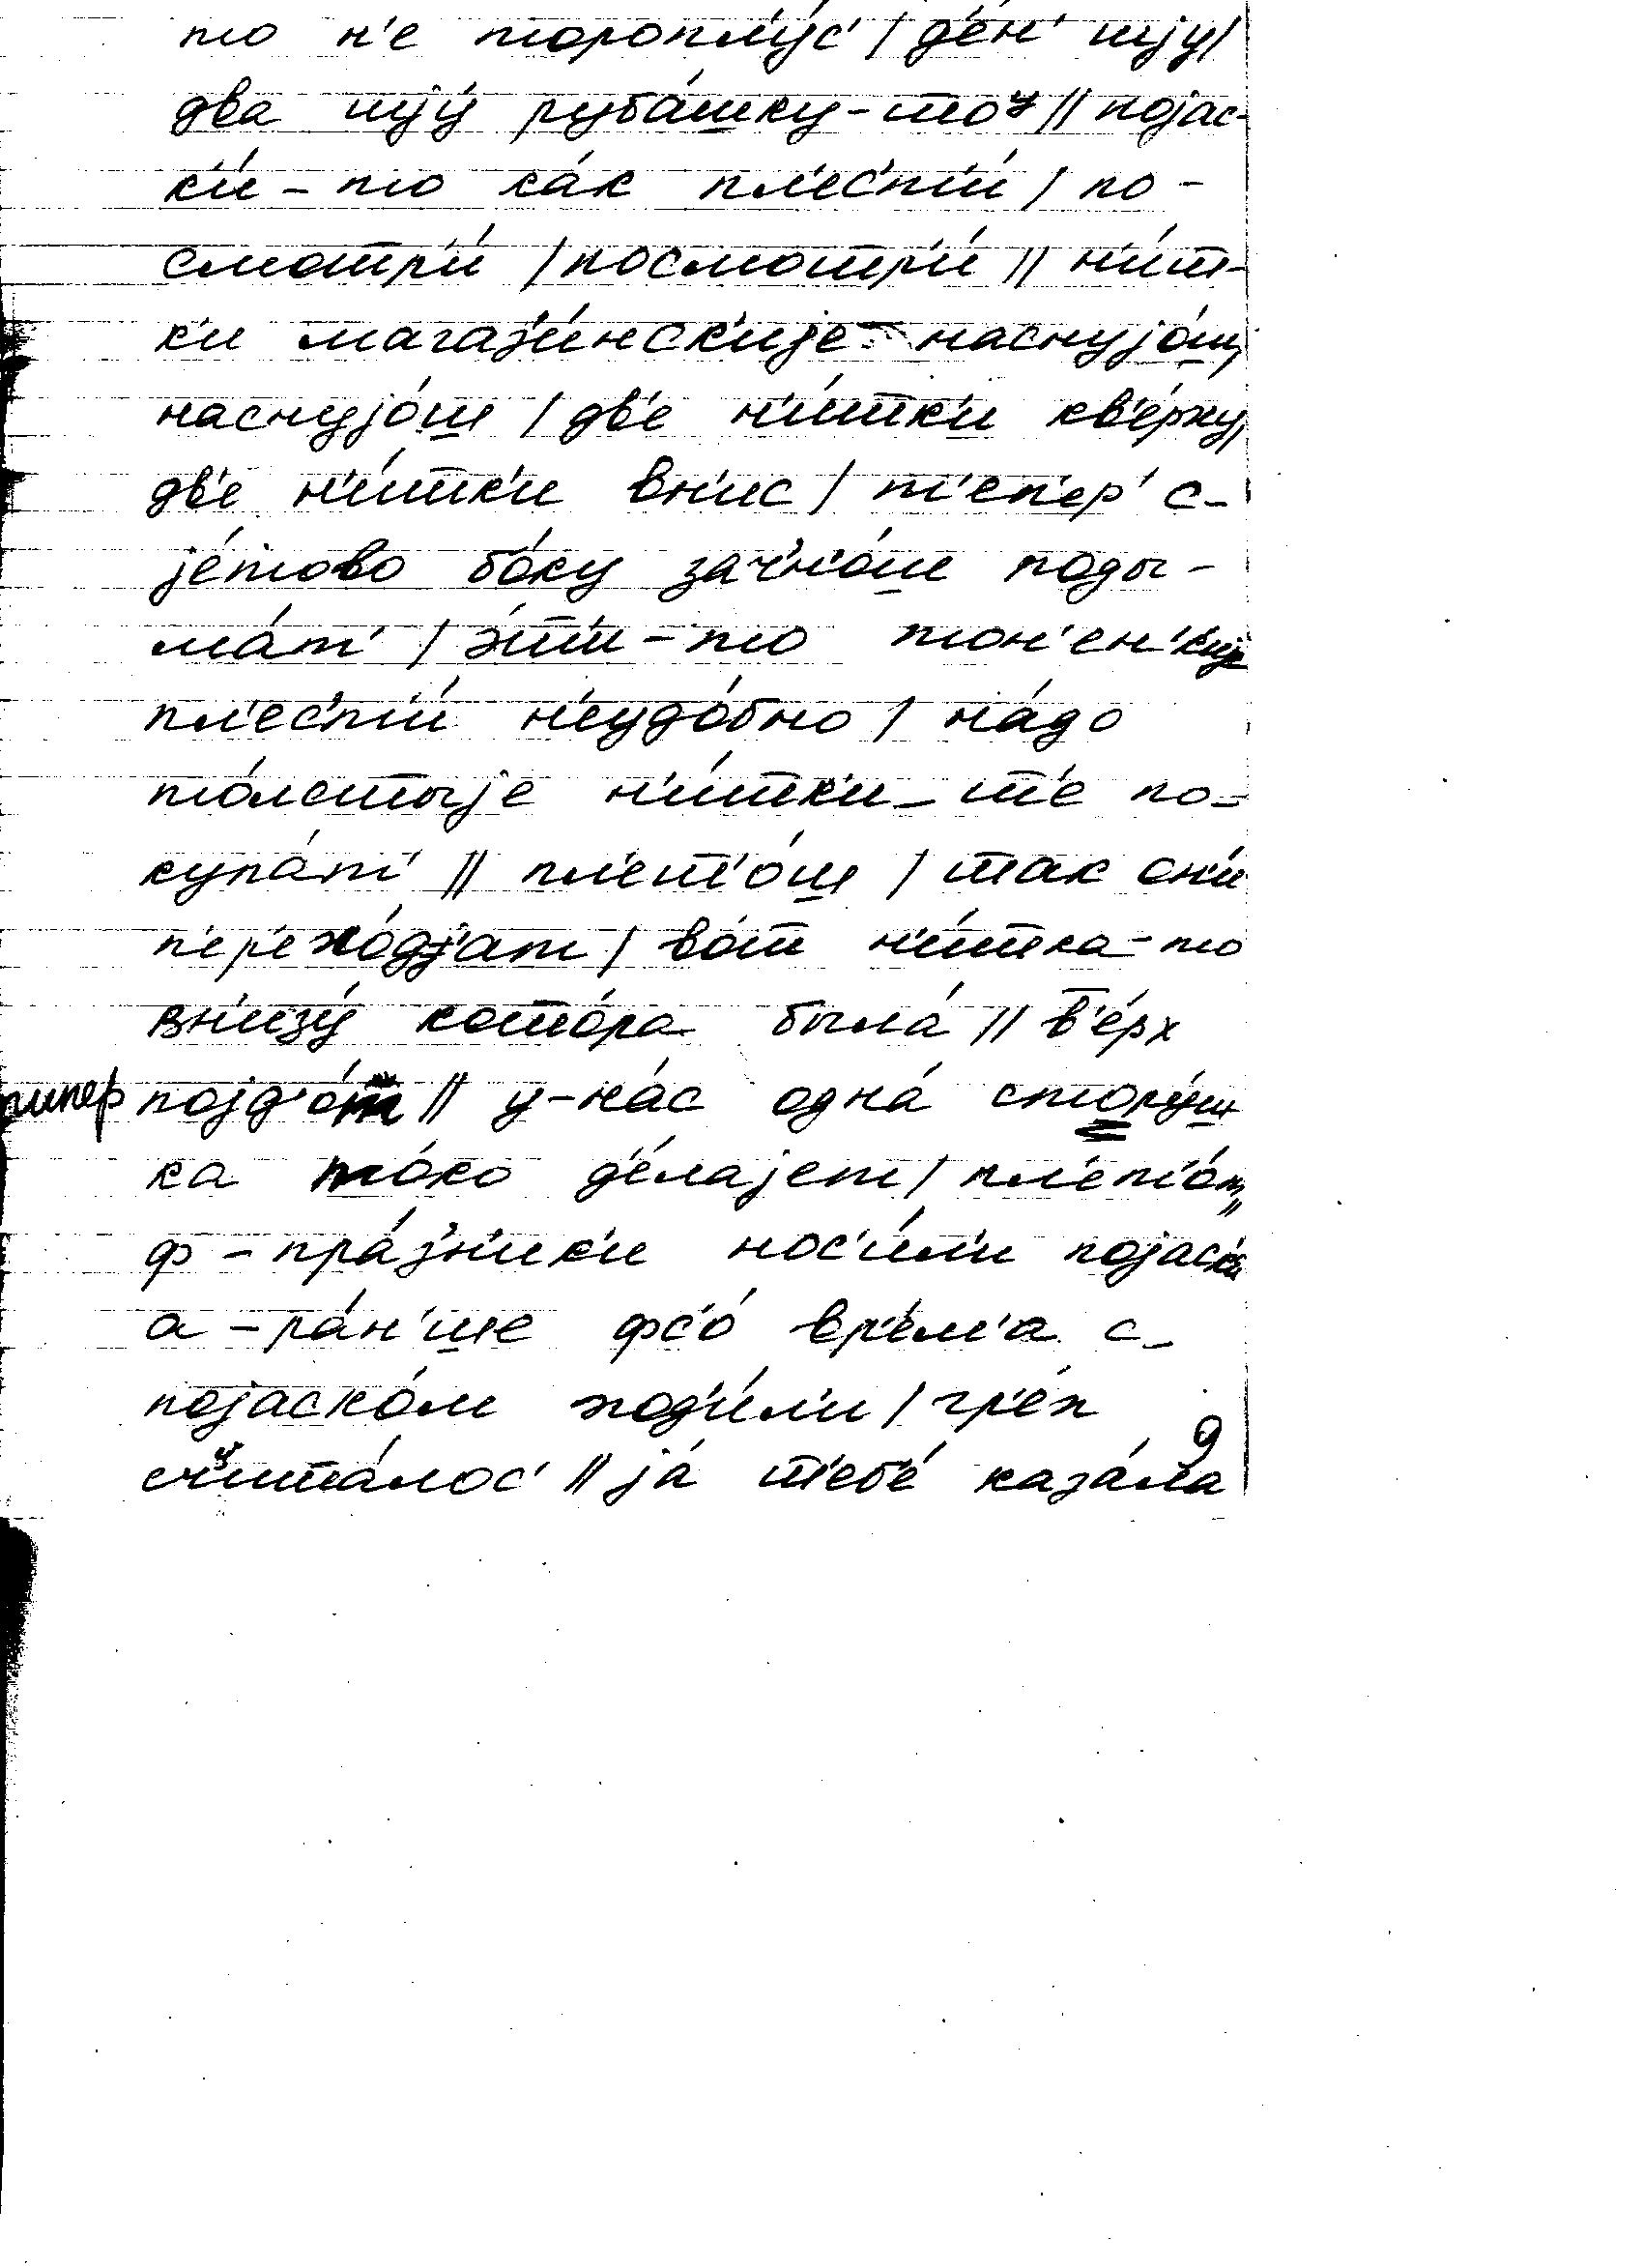 то н'е тороплу́с' / д'е́н' шjу /
два шjу́ руба́шку-то у // поjас-
к'и́-то ка́к пл'ес'т'и́ / по-
смотр'и́ / посмотр'и́ // н'и́т-
к'и магаз'и́нск'иjе наснуjо́ш,
наснуjо́ш / дв'е н'и́тк'и кв'е́рху,
дв'е н'и́тк'и вн'ис / т'еп'ер' с-
jе́тово бо́ку зач'н'о́ш поды-
ма́т' / э́т'и-то тон'ен'к'иjе
пл'ес'т'и́ н'еудо́бно / на́до
то́лстыjе н'и́тк'и-т'е по-
купа́т' // пл'ет'о́ш / так он'и́
п'ер'ехо́дjат / во́т н'и́тка-то
вн'изу́ кото́ра была́ // в'е́рх
поjд'о́т // у-на́с одна́ стору́ш
ка то́ко д'е́лаjет / пл'ет'о́т //
ф-пра́з'н'ик'и нос'и́л'и поjаск'и́
а-ра́н'ше фс'о́ вр'е́м'а с-
поjаско́м ход'и́л'и / гр'е́х
сч'ита́лос' // jа́ т'еб'е́ каза́ла
9